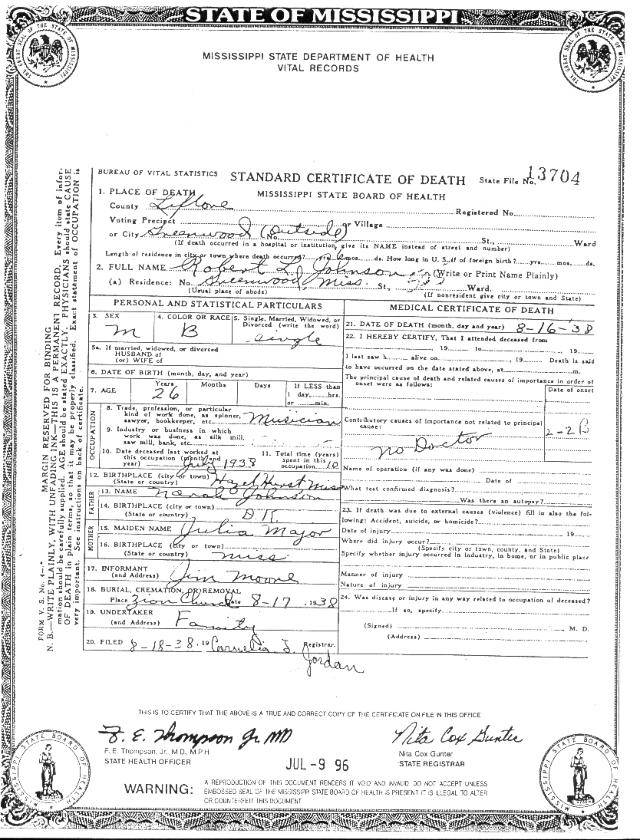 STATE OF MISSISSIPPI
MISSISSIPPI STATE DEPARTMENT OF HEALTH
VITAL RECORDS
BUREAU OF VITAL STATISTICS STANDARD CERTIFICATE OF DEATH State File No. 13704
MISSISSIPPI STATE BOARD OF HEALTH
1. PLACE OF DEATH
County Leflore Registered No.
Voting Precinct or Village
or City Greenwood (Outside) No. St., Ward
(If death occurred in a hospital or institution, give its NAME instead of street and number)
Length of residence in city or town where death occurred? mos. ds. How long in U. S. if of foreign birth? yrs. mos. ds.
2. FULL NAME Robert L. Johnson (Write or Print Name Plainly)
(a) Residence: No. Greenwood, Miss. St., Ward.
(Usual place of abode) (If nonresident give city or town and State)
PERSONAL AND STATISTICAL PARTICULARS
3. SEX M
4. COLOR OR RACE B
5. Single, Married, Widowed, or Divorced (write the word) single
5a. If married, widowed, or divorced
HUSBAND of
(or) WIFE of
6. DATE OF BIRTH (month, day, and year)
7. AGE Years 26 Months Days If LESS than
1 day, hrs.
or min.
OCCUPATION
8. Trade, profession, or particular
kind of work done, as spinner,
sawyer, bookkeeper, etc. Musician
9. Industry or business in which
work was done, as silk mill,
saw mill, bank, etc.
10. Date deceased last worked at
this occupation (month and
year) July 1938
11. Total time (years)
spent in this
occupation 10
12. BIRTHPLACE (city or town) Hazelhurst Miss
(State or country)
FATHER
13. NAME Norah Johnson
14. BIRTHPLACE (city or town)
(State or country) DK
MOTHER
15. MAIDEN NAME Julia Major
16. BIRTHPLACE (city or town)
(State or country) Miss
17. INFORMANT
(and Address) Jim Moore
18. BURIAL, CREMATION, OR REMOVAL
Place Zion Church Date 8-17, 1938
19. UNDERTAKER
(and Address) Family
20. FILED 8-18-38, 19 Cornelia J. Jordan Registrar.
MEDICAL CERTIFICATE OF DEATH
21. DATE OF DEATH (month, day and year) 8-16-38
22. I HEREBY CERTIFY, That I attended deceased from
, 19 to , 19
I last saw h alive on , 19 Death is said
to have occurred on the date stated above, at m.
The principal cause of death and related causes of importance in order of
onset were as follows:
Date of onset
Contributory causes of importance not related to principal
cause:
No Doctor
Name of operation (if any was done) Date of
What test confirmed diagnosis? Was there an autopsy?
23. If death was due to external causes (violence) fill in also the fol-
lowing: Accident, suicide, or homicide?
Date of injury 19
Where did injury occur?
(Specify city or town, county, and State)
Specify whether injury occurred in Industry, in home, or in public place
Manner of injury
Nature of injury
24. Was disease or injury in any way related to occupation of deceased?
If so, specify
(Signed) M. D.
(Address)
FORM V. S. No.
MARGIN RESERVED FOR BINDING
N. B.—WRITE PLAINLY, WITH UNFADING INK—THIS IS A PERMANENT RECORD. Every item of infor-
mation should be carefully supplied. AGE should be stated EXACTLY. PHYSICIANS should state CAUSE
OF DEATH in plain terms, so that it may be properly classified. Exact statement of OCCUPATION is
very important. See instructions on back of certificate.
THIS IS TO CERTIFY THAT THE ABOVE IS A TRUE AND CORRECT COPY OF THE CERTIFICATE ON FILE IN THIS OFFICE
F. E. Thompson Jr. MD
F. E. Thompson, Jr., M.D., M.P.H.
STATE HEALTH OFFICER
JUL -9 96
Nita Cox Gunter
Nita Cox Gunter
STATE REGISTRAR
WARNING: A REPRODUCTION OF THIS DOCUMENT RENDERS IT VOID AND INVALID. DO NOT ACCEPT UNLESS
EMBOSSED SEAL OF THE MISSISSIPPI STATE BOARD OF HEALTH IS PRESENT. IT IS ILLEGAL TO ALTER
OR COUNTERFEIT THIS DOCUMENT.
MISSISSIPPI STATE BOARD OF HEALTH
MISSISSIPPI STATE BOARD OF HEALTH